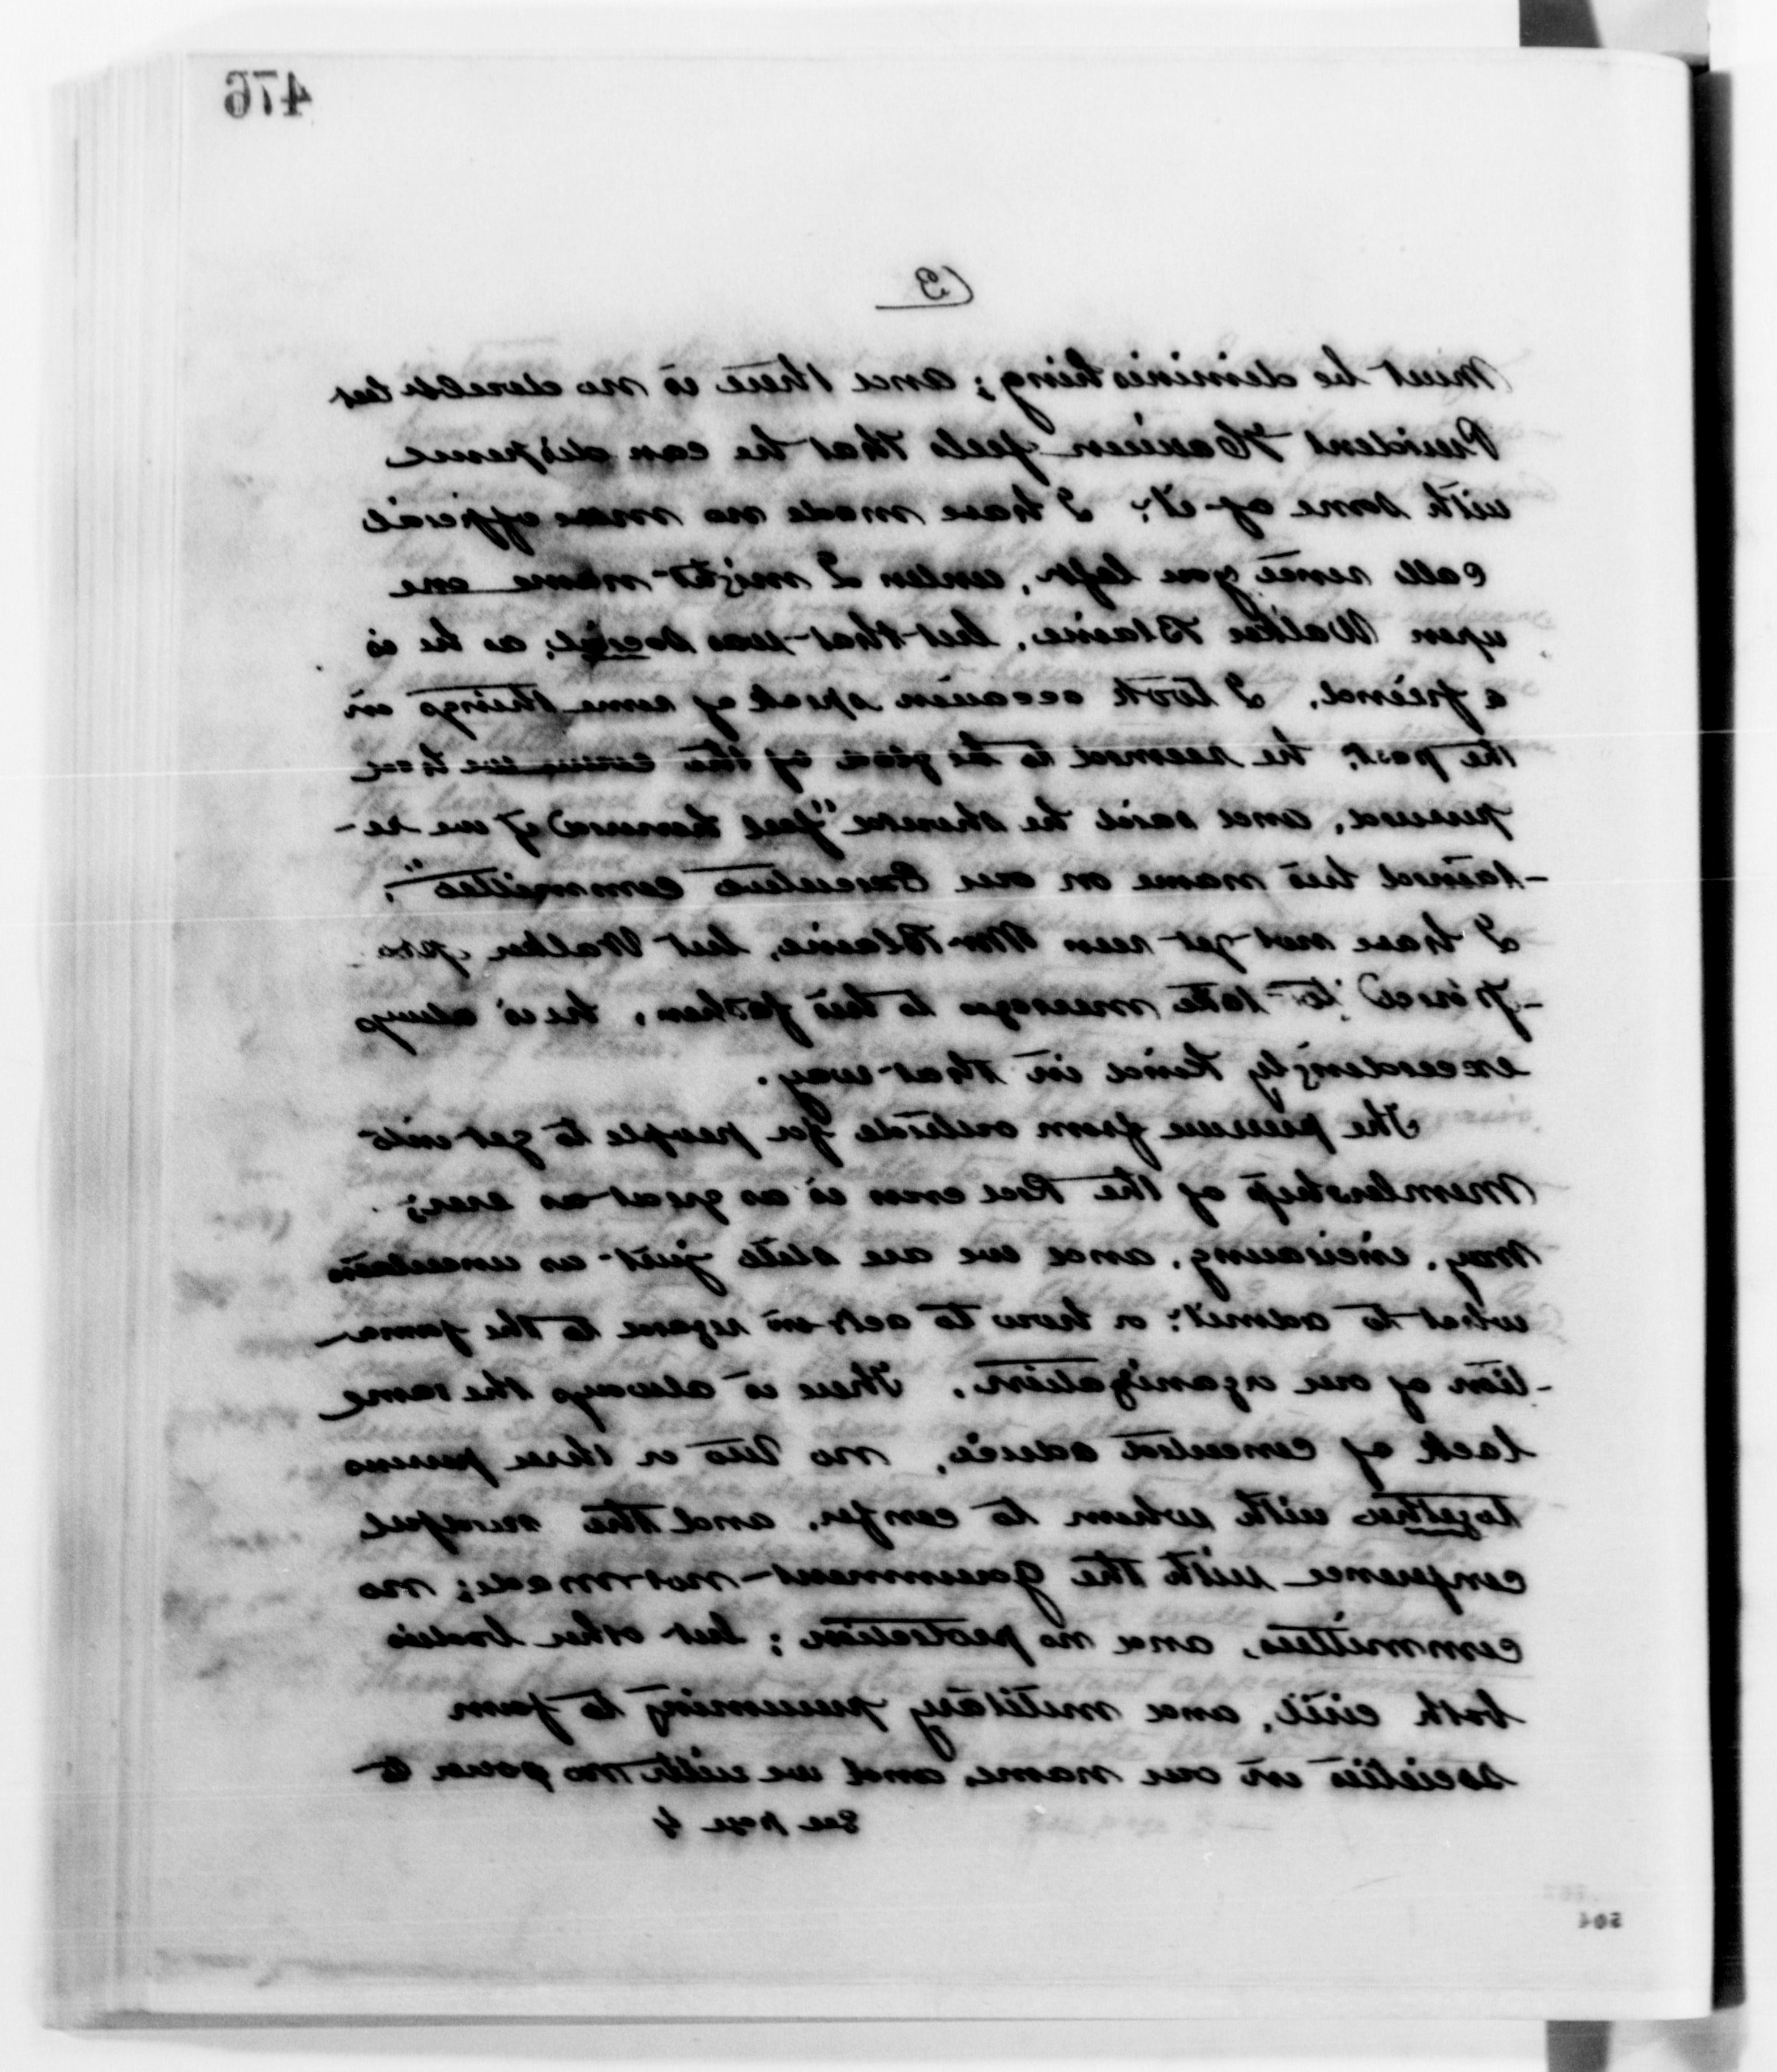 476
(3
Must be diminishing; and there is no doubt but
President Harrison feels that he can dispense
with some of it. I have made no more official
calls since you left, unless I might name one
upon Walker Blaine, but that was social, as he is
a friend. I took occasion speak of some things in
the past; he seemed to be glad of the we have
pursued, and said he should "feel honored if we re-
-tained his name on our Executive Committee".
I have not yet seen Mr Blaine, but Walker pro
-posed to take messages to his father, he is always
exceedingly kind in that way.
The pressure from outside for people to get into
Membership of the Red Cross is as great as ever;
nay, increasing, and we are still just as uncertain
what to admit: or how to act in regard to the forma-
-tion of our organization. There is always the same
lack of concerted advice, no two or three persons
together with whom to confer, and the needful
conference with the Government not made; no
committees, and no protection; but other bodies
both civil, and military presuming to form
societies in our name, and we with no power to
See page 4
504